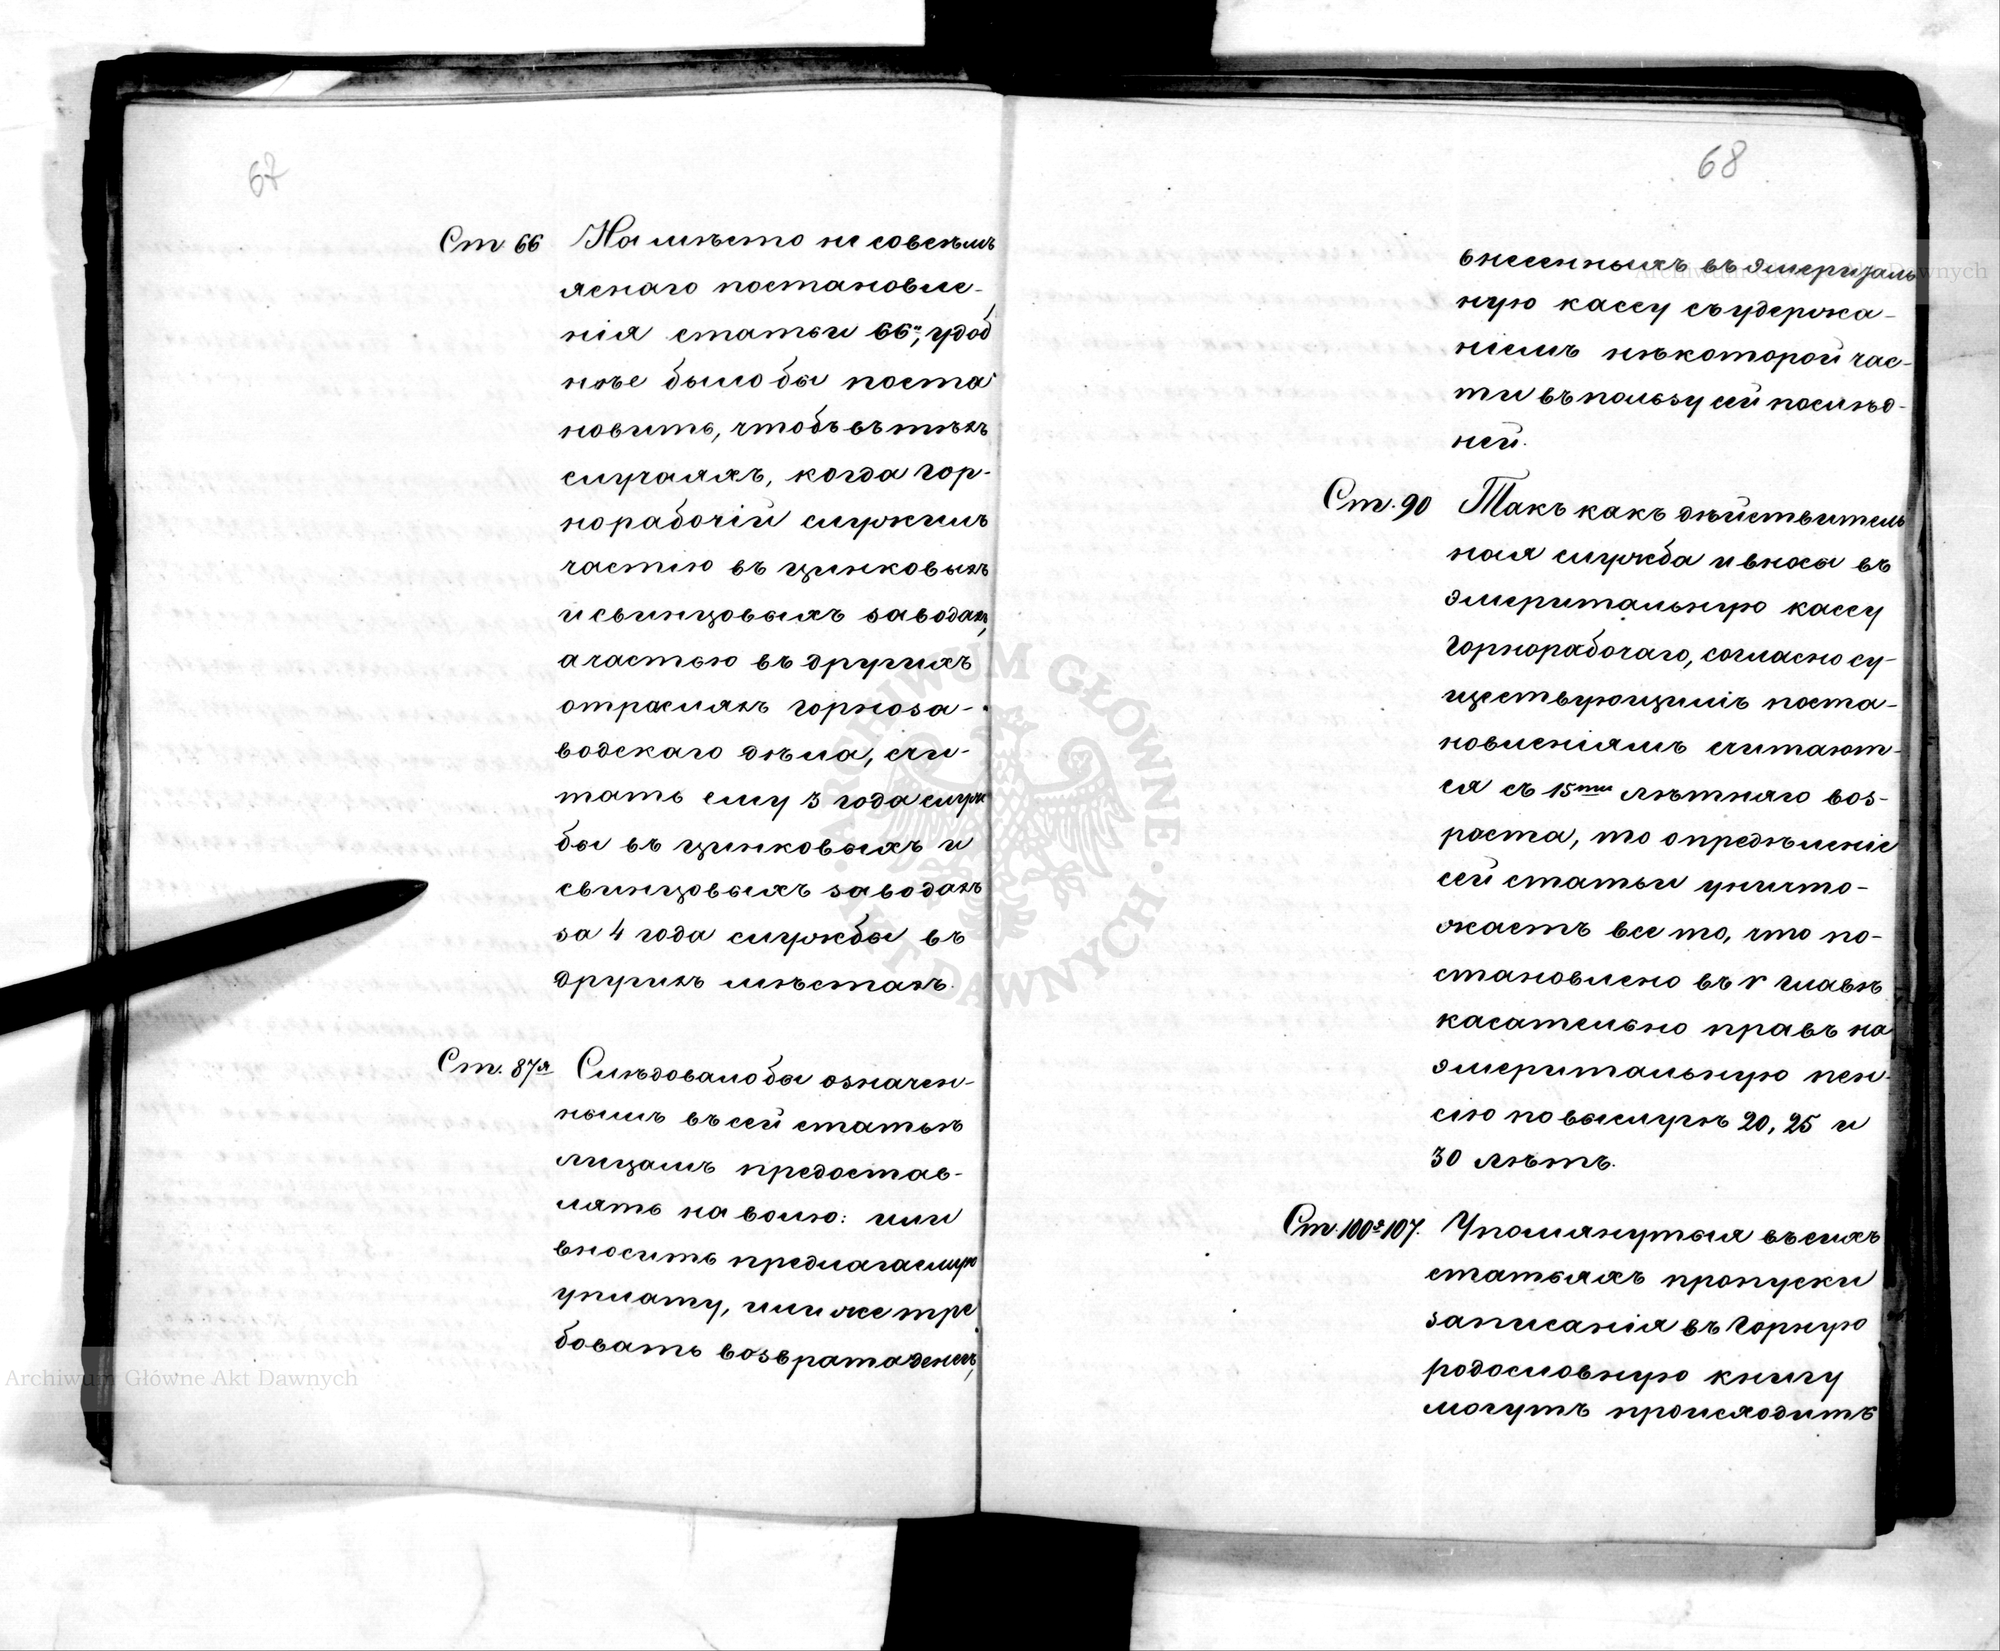 67
Ст 66 На мѣсто не совсѣмъ
яснаго постановле-
нія статьи 66й, удоб
нѣе было бы поста
новить, чтобъ въ тѣхъ
случаяхъ, когда гор-
норабочій служилъ
частію въ цинковыхъ
и свинцовыхъ заводахъ,
а частью въ другихъ
отрасляхъ горноза-
водскаго дѣла, счи-
тать ему 3 года служ
бы въ цинковыхъ и
свинцовыхъ заводахъ
за 4 года службы въ
другихъ мѣстахъ.
Ст. 87я Слѣдовало бы означен-
нымъ въ сей статьѣ
лицамъ предостав-
лять на волю: или
вносить предлагаемую
уплату, или же тре
бовать возврата денегъ,
68
внесенныхъ въ эмериталь
ную кассу съ удержа-
ніемъ нѣкоторой час-
ти въ пользу сей послѣд-
ней.
Ст. 90 Такъ какъ дѣйствитель
ная служба и вносы въ
эмеритальную кассу
горнорабочаго, согласно су-
ществующимъ поста-
новленіямъ считают-
ся съ 15ти лѣтняго воз-
раста, то опредѣленіе
сей статьи уничто-
жаетъ все то, что по-
становлено въ V главѣ
касательно правъ на
эмеритальную пен-
сію по выслугѣ 20, 25 и
30 лѣтъ.
Ст. 100 107. Упомянутыя въ сихъ
статьяхъ пропуски
записанія въ горную
родословную книгу
могутъ происходить
Archiwum Główne Akt Dawnych
Archiwum Główne Akt Dawnych
ARCHIWUM GŁÓWNE AKT DAWNYCH